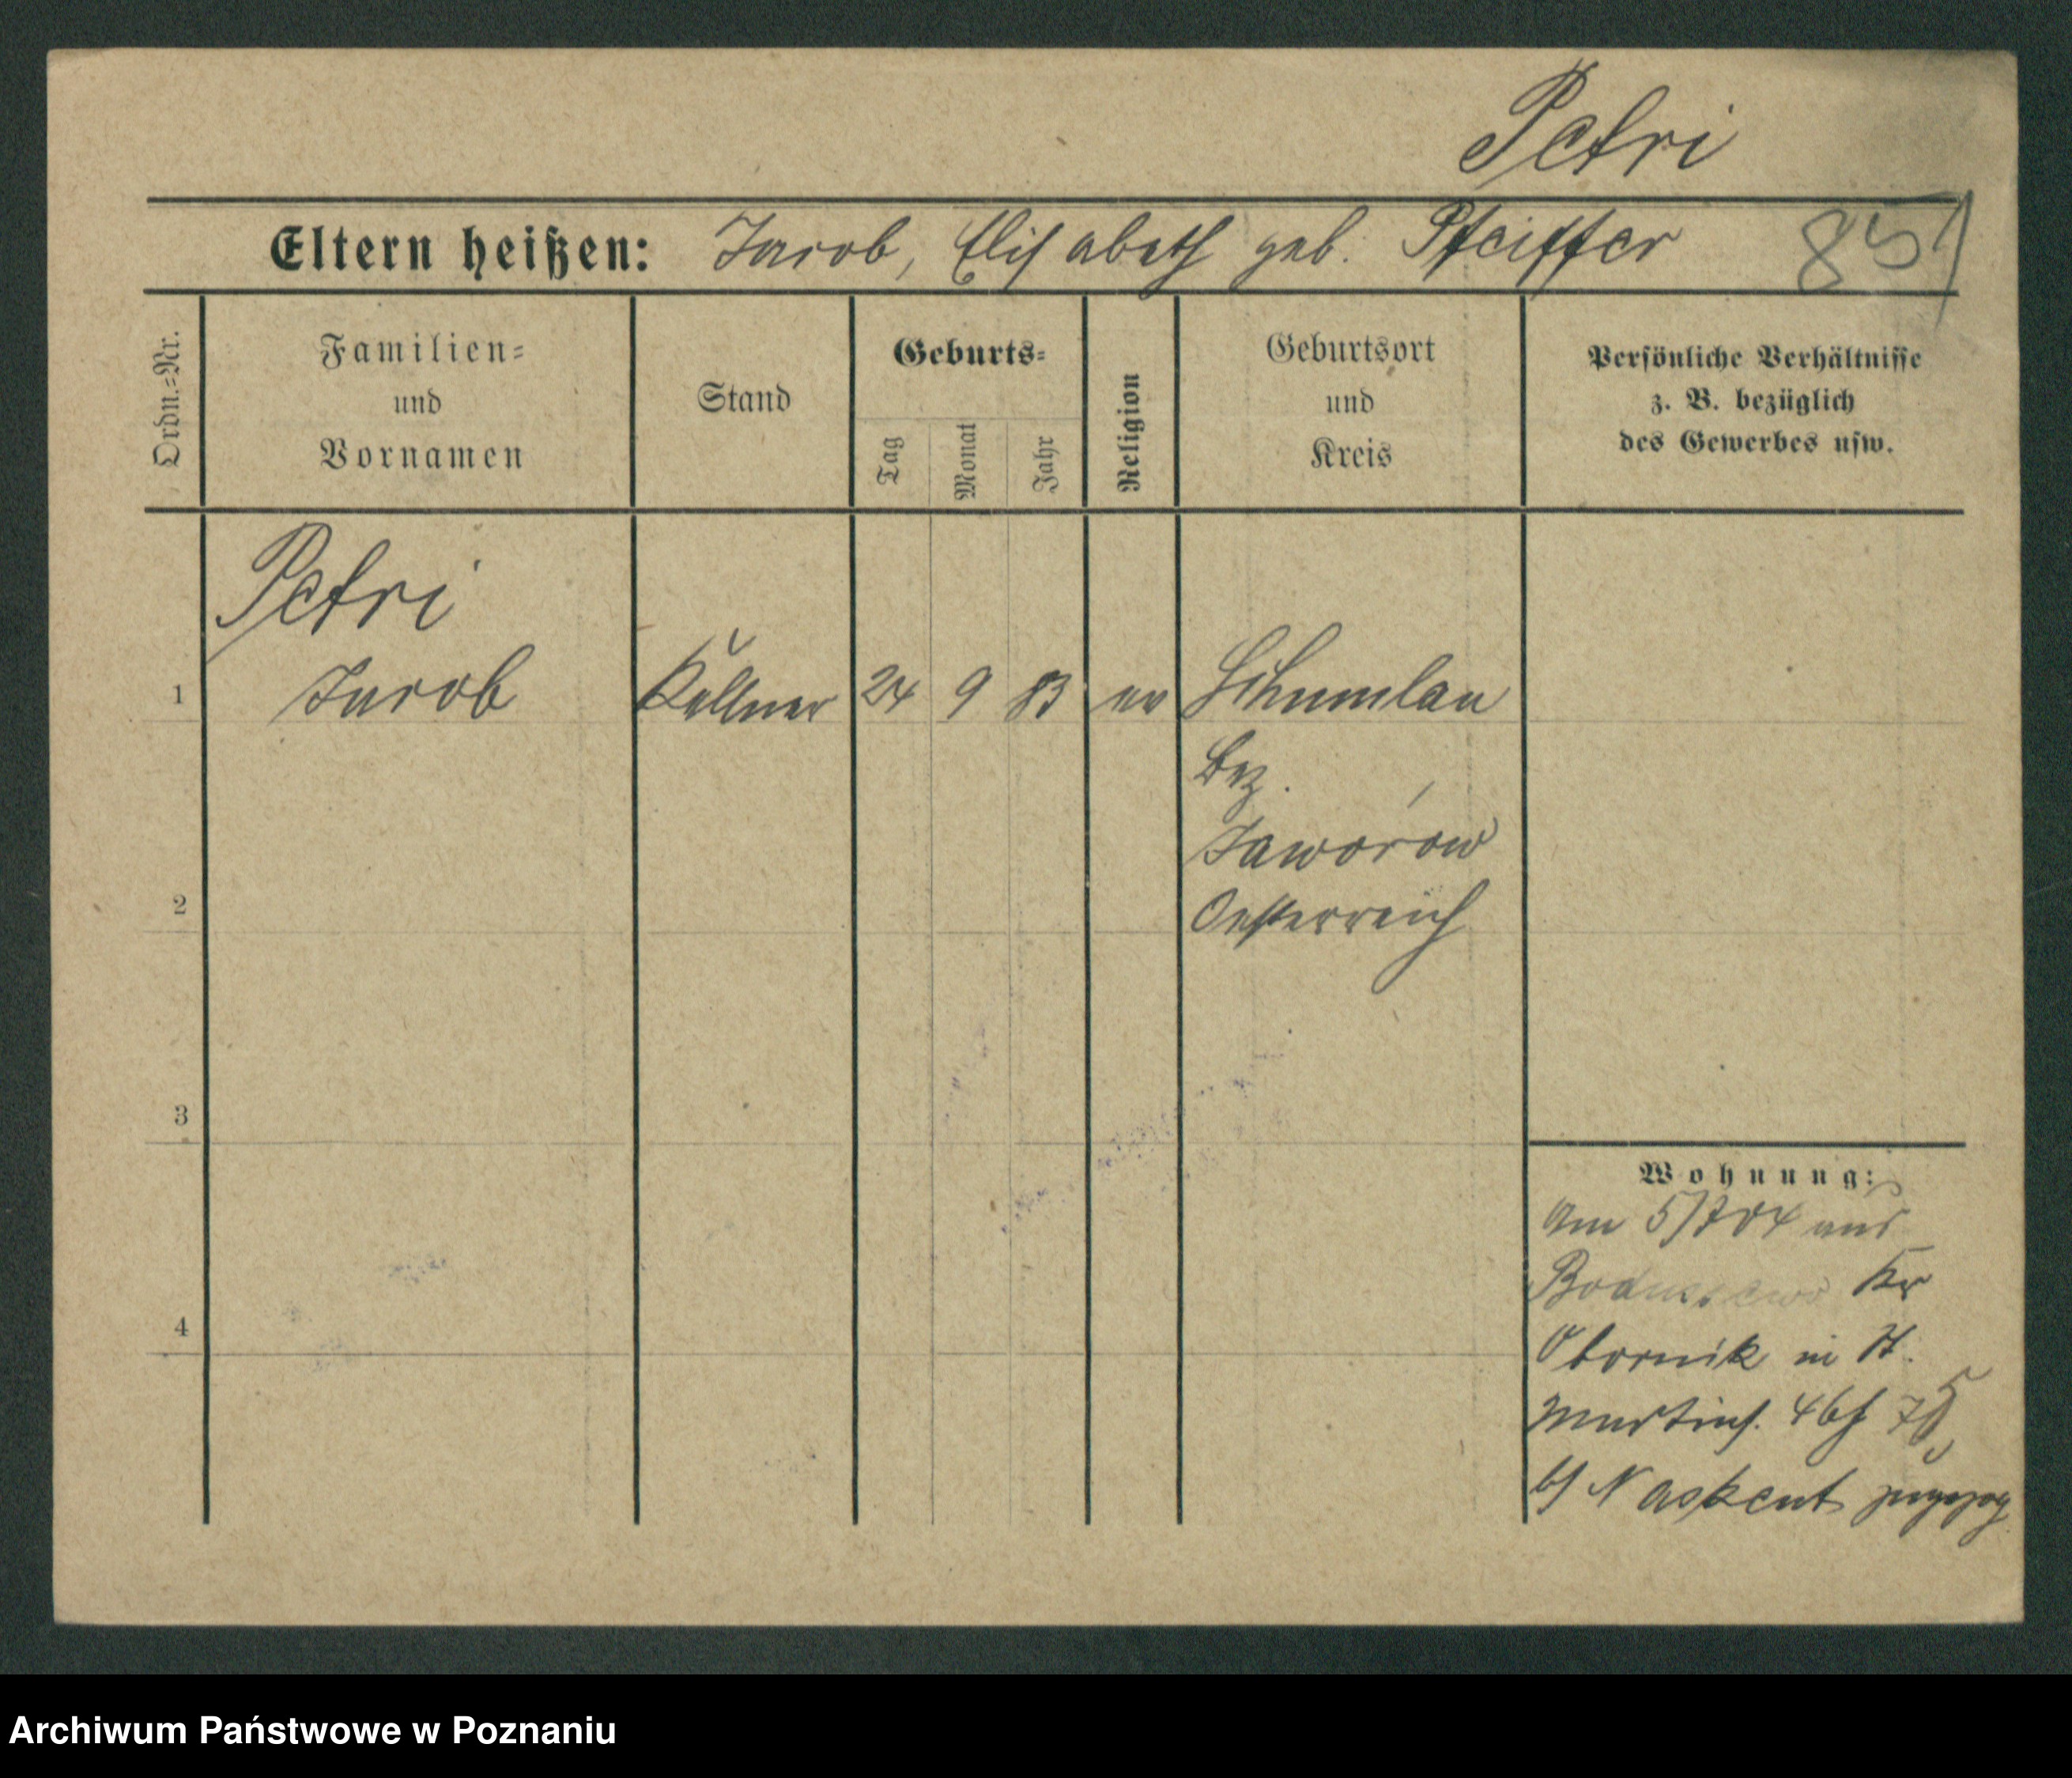 Petri
Eltern heißen: Jacob, Elisabeth geb. Pfeiffer
Ordn.=Nr.
Familien=
und
Vornamen
Stand
Geburts=
Tag
Monat
Jahr
Religion
Geburtsort
und
Kreis
Persönliche Verhältnisse
z. B. bezüglich
des Gewerbes usw.
Petri
1 Jacob Kellner 24 9 83 ev Schumlau
Bez.
Jaworów
2 Oesterreich
3
4
Wohnung:
Am 5/7 04 aus
Kr
Obornik in St.
Martinst.
bei Naskent zugezog.
Archiwum Państwowe w Poznaniu